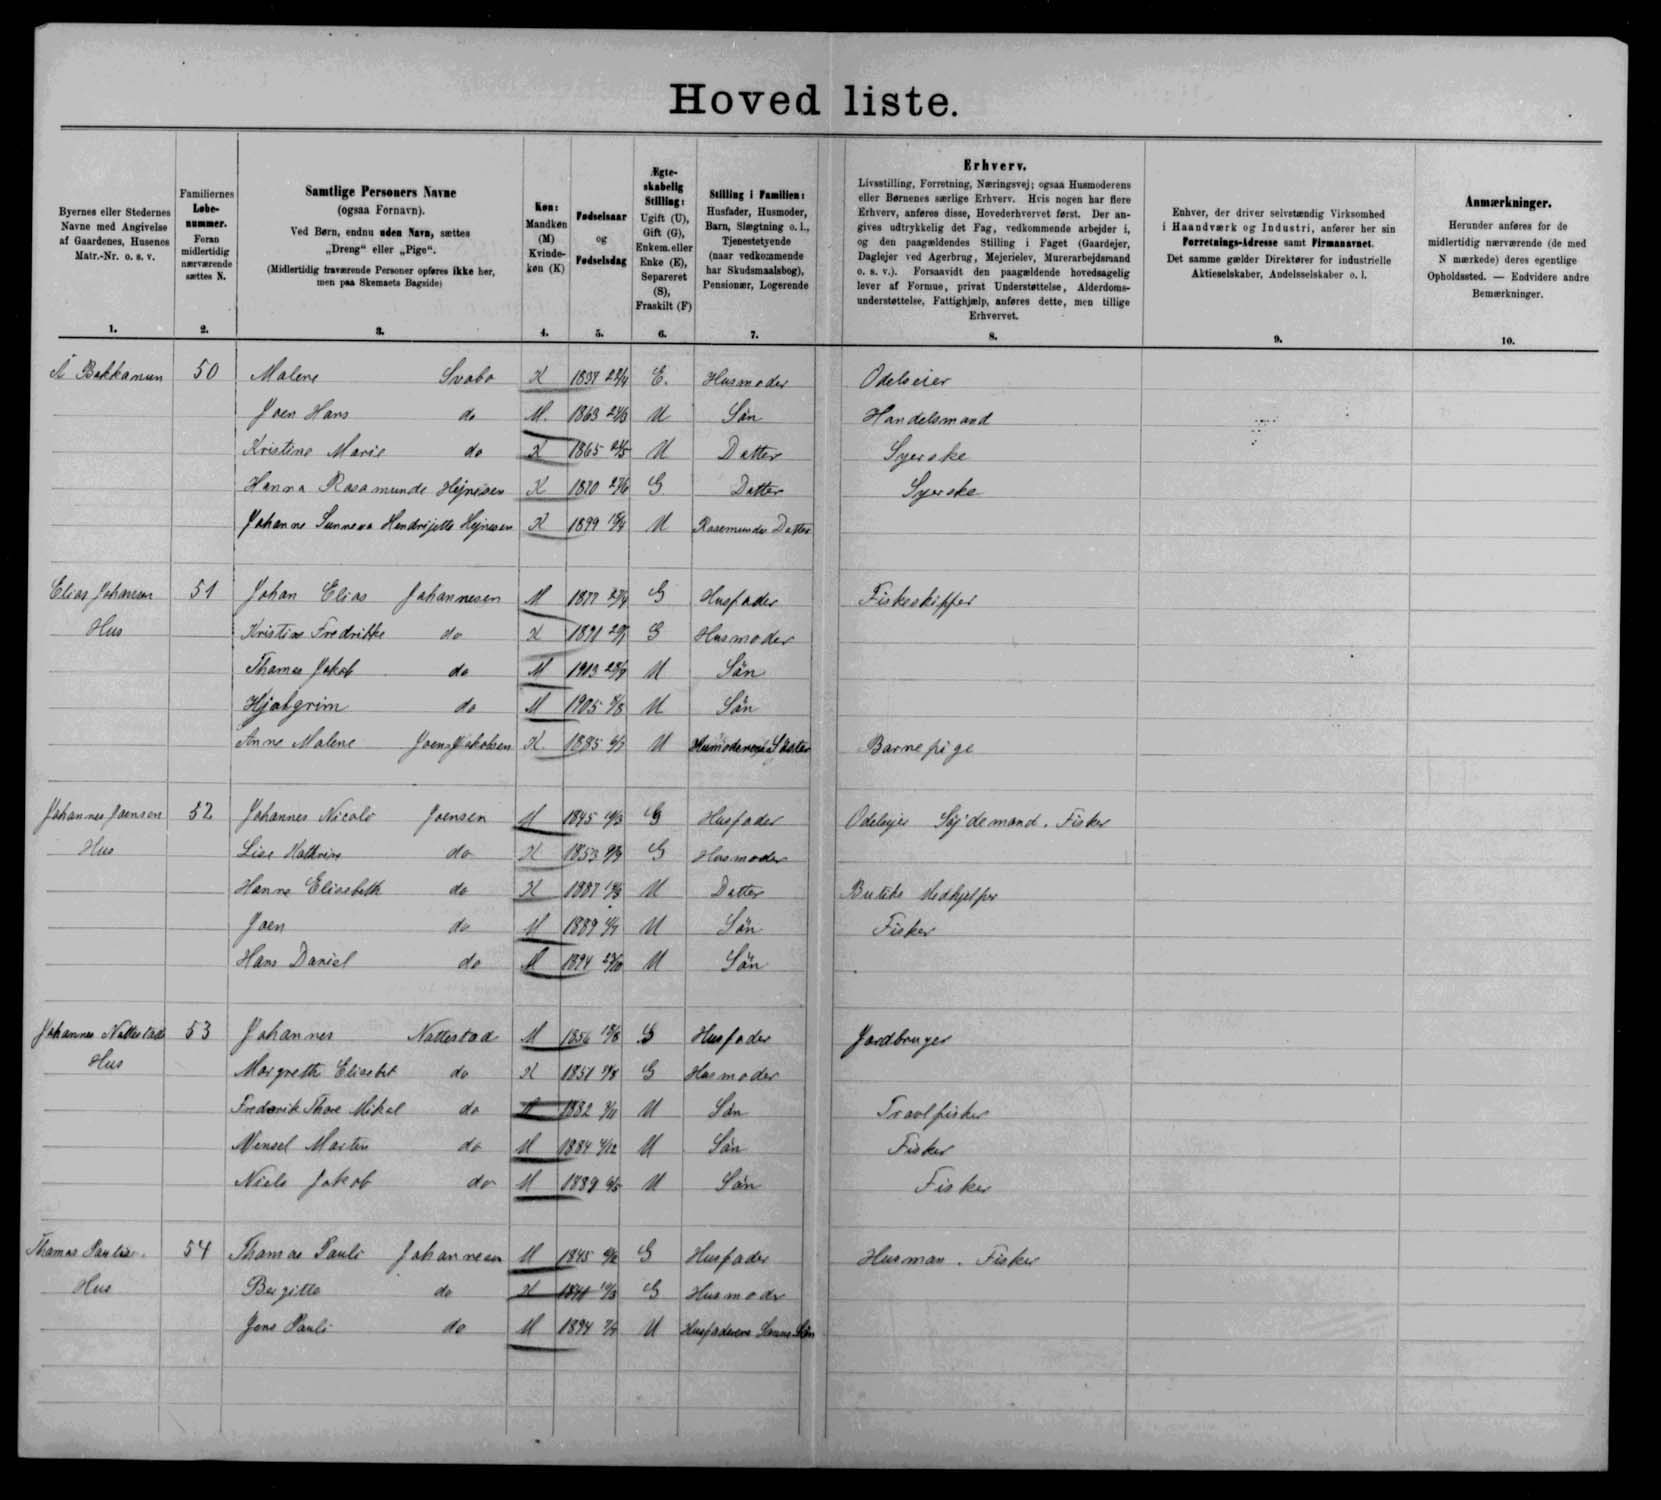 Hoved liste.
Byernes eller Stedernes
Navne med Angivelse
af Gaardenes, Husenes
Matr.-Nr. o. s. v.
1.
Familiernes
Løbe-
nummer.
Foran
midlertidig
nærværende
sættes N.
2.
Samtlige Personers Navne
(ogsaa Fornavn).
Ved Børn, endnu uden Navn, sættes
„Dreng“ eller „Pige“.
(Midlertidig fraværende Personer opføres ikke her,
men paa Skemaets Bagside)
3.
Køn:
Mandkøn
(M)
Kvinde-
køn (K)
4.
Fødselsaar
og
Fødselsdag
5.
Ægte-
skabelig
Stilling:
Ugift (U),
Gift (G),
Enkem. eller
Enke (E),
Separeret
(S),
Fraskilt (F)
6.
Stilling i Familien:
Husfader, Husmoder,
Barn, Slægtning o. l.,
Tjenestetyende
(naar vedkommende
har Skudsmaalsbog),
Pensionær, Logerende
7.
Erhverv,
Livsstilling, Forretning, Næringsvej; ogsaa Husmoderens
eller Børnenes særlige Erhverv. Hvis nogen har flere
Erhverv, anføres disse, Hovederhvervet først. Der an-
gives udtrykkelig det Fag, vedkommende arbejder i,
og den paagældendes Stilling i Faget (Gaardejer,
Daglejer ved Agerbrug, Mejerielev, Murerarbejdsmand
o. s. v.). Forsaavidt den paagældende hovedsagelig
lever af Formue, privat Understøttelse, Alderdoms-
understøttelse, Fattighjælp, anføres dette, men tillige
Erhvervet.
8.
Enhver, der driver selvstændig Virksomhed
i Haandværk og Industri, anfører her sin
Forretnings-Adresse samt Firmanavnet.
Det samme gælder Direktører for industrielle
Aktieselskaber, Andelsselskaber o. l.
9.
Anmærkninger.
Herunder anføres for de
midlertidig nærværende (de med
N mærkede) deres egentlige
Opholdssted. — Endvidere andre
Bemærkninger.
10.
Á Bakkanum 50 Malene Svabo K 1837 E. Husmoder Odelseier
Joen Hans do M. 1863 U Sön Handelsmand
Kristine Marie do K 1865 U Datter Syerske
Hanna Rosamunde Hejnesen K 1870 G Datter Syerske
Johanne Sunneva Hendrijette Hejnesen K 1899 U Rosemundes Datter
Elias Johansen 51 Johan Elias Johannesen M 1877 G Husfader Fiskeskipper
Hus Kristine Fredrikke do K G Husmoder
Thomas Jakob do M 1903 U Sön
Hjalgrim do M 1905 U Sön
Anne Malene Joensjakobsen K 1885 U Husmoderens Söster Barnepige
Johannes Joensen 52 Johannes Nicolai Joensen M 1845 G Husfader Odelsejer Fisker
Hus Lise Kathrine do K 1853 G Husmoder
Hanne Elisabeth do K 1887 U Datter Butiks Medhjelper
Joen do M 1889 U Sön Fisker
Hans Daniel do M 1894 U Sön
Johannes Nattestads 53 Johannes Nattestad M 1856 G Husfader Jordbruger
Hus Margrethe Elisebet do K 1851 G Husmoder
Frederik Thore Mikal do M 1882 U Sön Travlfisker
Mensel Morten do M 1884 4/12 U Sön Fisker
Niels Jakob do M 1889 U Sön Fisker
Thomas Paulis 54 Thomas Pauli Johannesen M 1845 G Husfader Husman. Fisker
Hus Bergitte do K G Husmoder
Jens Pauli do M 1894 U Husfaderens Sönne Sön